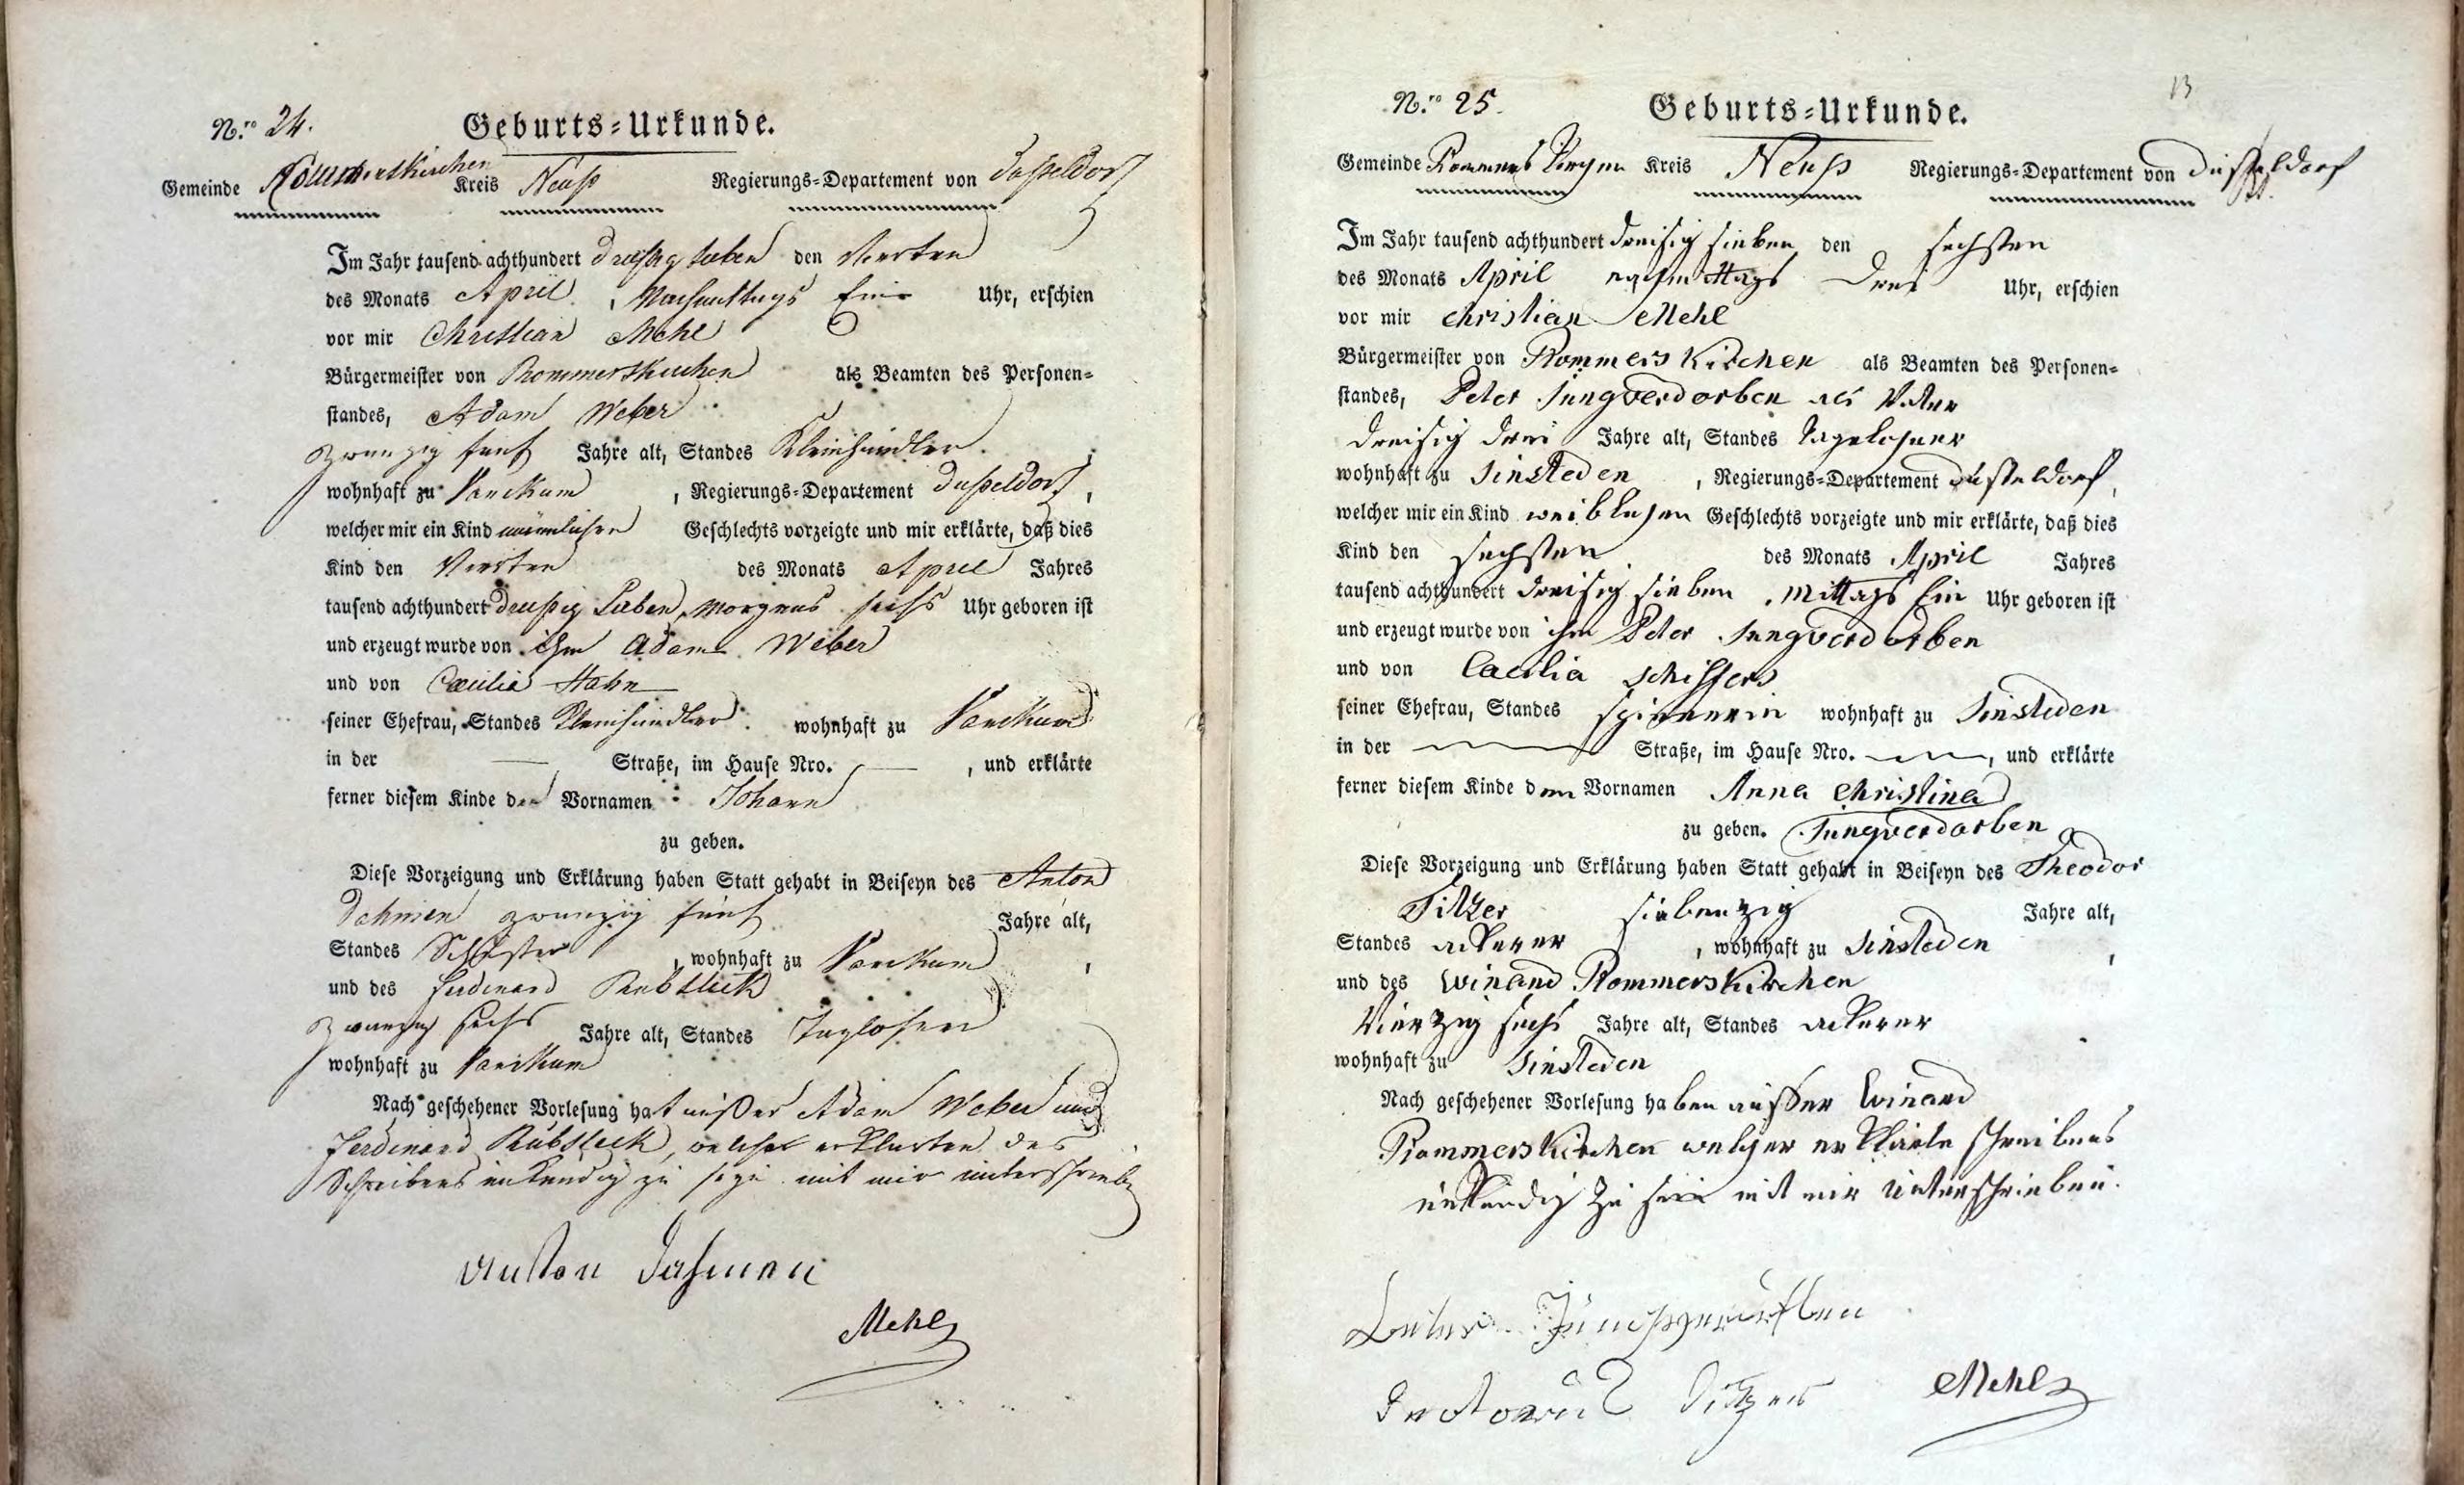 N.ro 24.
Geburts-Urkunde.
Gemeinde Rommerskirchen Kreis Neuß Regierungs-Departement von Düßeldorf
Im Jahr tausend achthundert dreißig sieben den Vierten
des Monats April, Nachmittags Ein Uhr, erschien
vor mir Christian Mehl
Bürgermeister von Rommerskirchen als Beamten des Personen-
standes, Adam Weber
zwanzig fünf Jahre alt, Standes Kleinhändler,
wohnhaft zu Vanikum, Regierungs-Departement Düßeldorf,
welcher mir ein Kind männlichen Geschlechts vorzeigte und mir erklärte, daß dies
Kind den Vierten des Monats April Jahres
tausend achthundert dreißig sieben, Morgens sechs Uhr geboren ist
und erzeugt wurde von ihm Adam Weber
und von Cäcilia Hahn
seiner Ehefrau, Standes Kleinhändler wohnhaft zu Vanikum
in der — Straße, im Hause Nro. —, und erklärte
ferner diesem Kinde den Vornamen Johann
zu geben.
Diese Vorzeigung und Erklärung haben Statt gehabt in Beiseyn des Anton
Dahmen zwanzig fünf Jahre alt,
Standes Schuster, wohnhaft zu Vanikum,
und des Ferdinand Rübsteck
zwanzig sechs Jahre alt, Standes Taglohner
wohnhaft zu Vanikum
Nach geschehener Vorlesung hat außer Adam Weber und
Ferdinand Rübsteck, welche erklärten des
Schreibens unkundig zu seyn mit mir unterschrieben
Anton Dahmen
Mehl
13
N.ro 25.
Geburts-Urkunde.
Gemeinde Rommerskirchen Kreis Neuß Regierungs-Departement von Düsseldorf
Im Jahr tausend achthundert dreisig sieben den sechsten
des Monats April nachmittags drei Uhr, erschien
vor mir Christian Mehl
Bürgermeister von Rommerskirchen als Beamten des Personen-
standes, Peter Jungverdorben als Vater
dreisig drei Jahre alt, Standes Tagelohner
wohnhaft zu Sinsteden, Regierungs-Departement Düsseldorf,
welcher mir ein Kind weiblichen Geschlechts vorzeigte und mir erklärte, daß dies
Kind den sechsten des Monats April Jahres
tausend achthundert dreisig sieben, Mittags Ein Uhr geboren ist
und erzeugt wurde von ihm Peter Jungverdorben
und von Caecilia Schiffers
seiner Ehefrau, Standes Spinnerin wohnhaft zu Sinsteden
in der — Straße, im Hause Nro. —, und erklärte
ferner diesem Kinde den Vornamen Anna Christina
zu geben. Jungverdorben
Diese Vorzeigung und Erklärung haben Statt gehabt in Beiseyn des Theodor
Sitzer siebenzig Jahre alt,
Standes Ackerer, wohnhaft zu Sinsteden,
und des Winand Rommerskirchen
Vierzig sechs Jahre alt, Standes Ackerer
wohnhaft zu Sinsteden
Nach geschehener Vorlesung haben außer Winand
Rommerskirchen welcher erklärte schreibens
unkundig zu sein mit mir unterschrieben.
Mehl